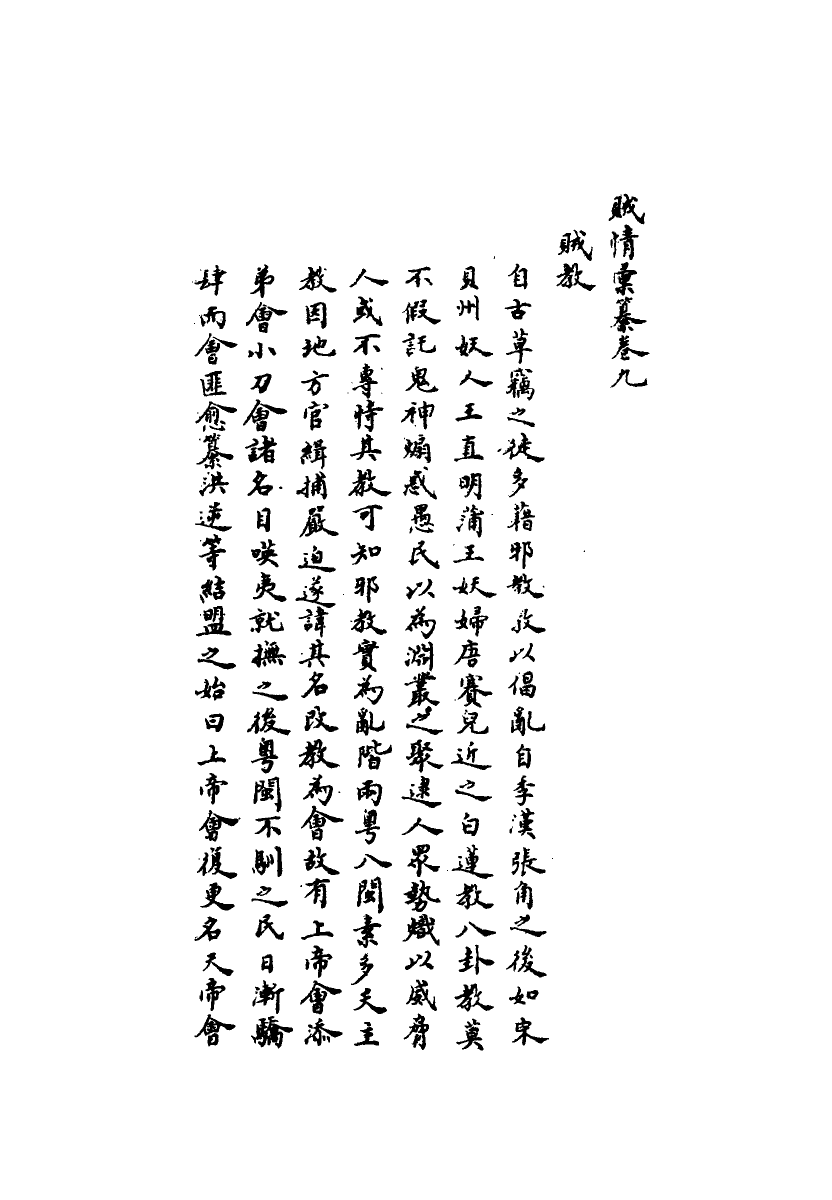 賊情彙纂卷九
賊教
自古草竊之徒多藉邪教以倡亂自季漢張角之後如宋
貝州妖人王直明蒲王妖婦唐賽兒近之白蓮教八卦教莫
不假託鬼神煽惑愚民以為淵叢之聚逮人眾勢熾以威脅
人或不專恃其教可知邪教實為亂階兩粵八閩素多天主
教因地方官緝捕嚴迫遂諱其名改教為會故有上帝會添
弟會小刀會諸名目嘆夷就撫之後粵閩不馴之民日漸驕
肆而會匪愈纂洪逆等結盟之始曰上帝會復更名天帝會